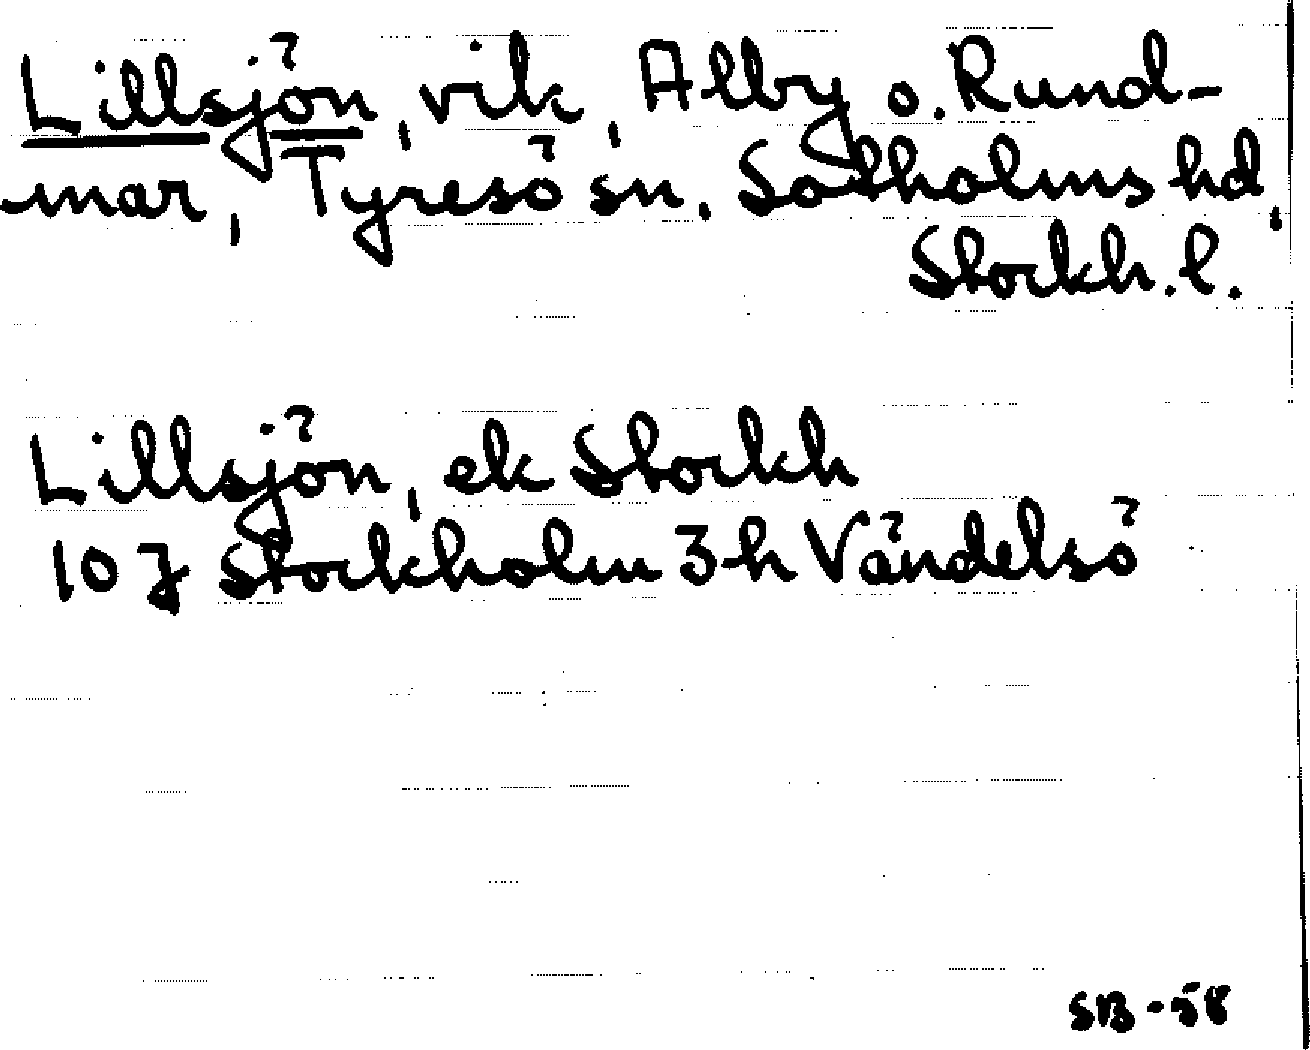 Lillsjön, vik, Alby o. Rund-
mar, Tyresö sn. Sotholms hd,
Stockh. l.
Lillsjön, ek Stockh
10 J Stockholm 3 h Vändelsö
SB-58